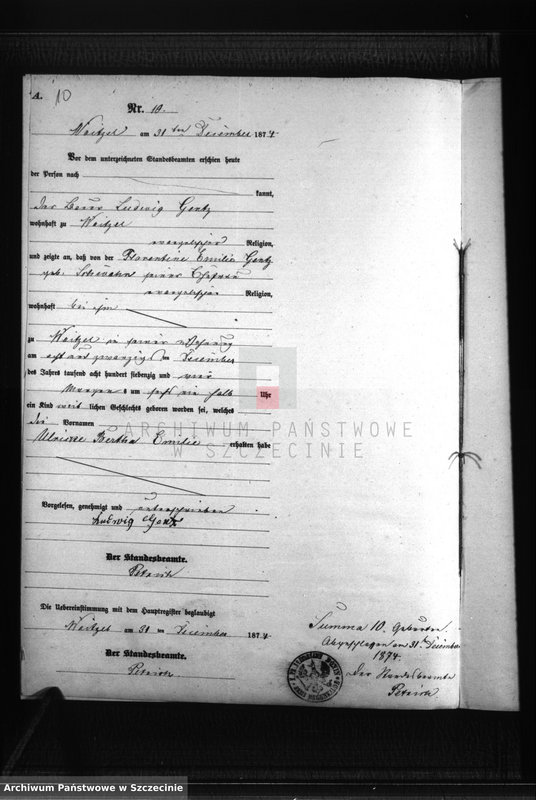 A.
10
Nr. 10.
Woitzel am 31ten December 1874.
Vor dem unterzeichneten Standesbeamten erschien heute
der Person nach
kannt,
der Bauer Ludwig Gentz
wohnhaft zu Woitzel
evangelischer Religion,
und zeigte an, daß von der Florentine Emilie Gentz
geb. seiner Ehefrau
evangelischer Religion,
wohnhaft bei ihm
zu Woitzel in seiner Wohnung
am acht und zwanzigsten December
des Jahres tausend acht hundert siebenzig und vier
Morgens um sechs ein halb Uhr
ein Kind weiblichen Geschlechts geboren worden sei, welches
die Vornamen
Ulricke Bertha Emilie erhalten habe
Vorgelesen, genehmigt und unterschrieben
Ludwig Gentz
Der Standesbeamte.
Die Uebereinstimmung mit dem Hauptregister beglaubigt
Woitzel am 31ten December 1874.
Der Standesbeamte.
Summa 10. Geburten.
Abgeschlossen am 31t December
1874.
Der Standesbeamte
ARCHIWUM PAŃSTWOWE
W SZCZECINIE
Archiwum Państwowe w Szczecinie